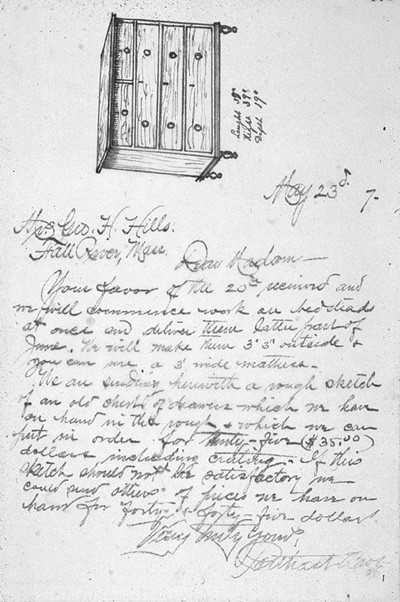 Lenght 39"
Hight 39"
Depth 19"
May 23d 7-
Mrs Geo. H. Hills.
Fall River, Mass.
Dear Madam—
Your favor of the 20th received and
we will commence work on bedsteads
at once and deliver them latter part of
June. We will make them 3'3" outside &
you can use a 3' wide mattress.
We are sending herewith a rough sketch
of an old chest of drawers which we have
on hand in the rough & which we can
put in order for thirty-five ($35.00)
dollars including crating. If this
sketch should not be satisfactory we
could send others of pieces we have on
hand for forty & forty-five dollars.
Very truly yours,